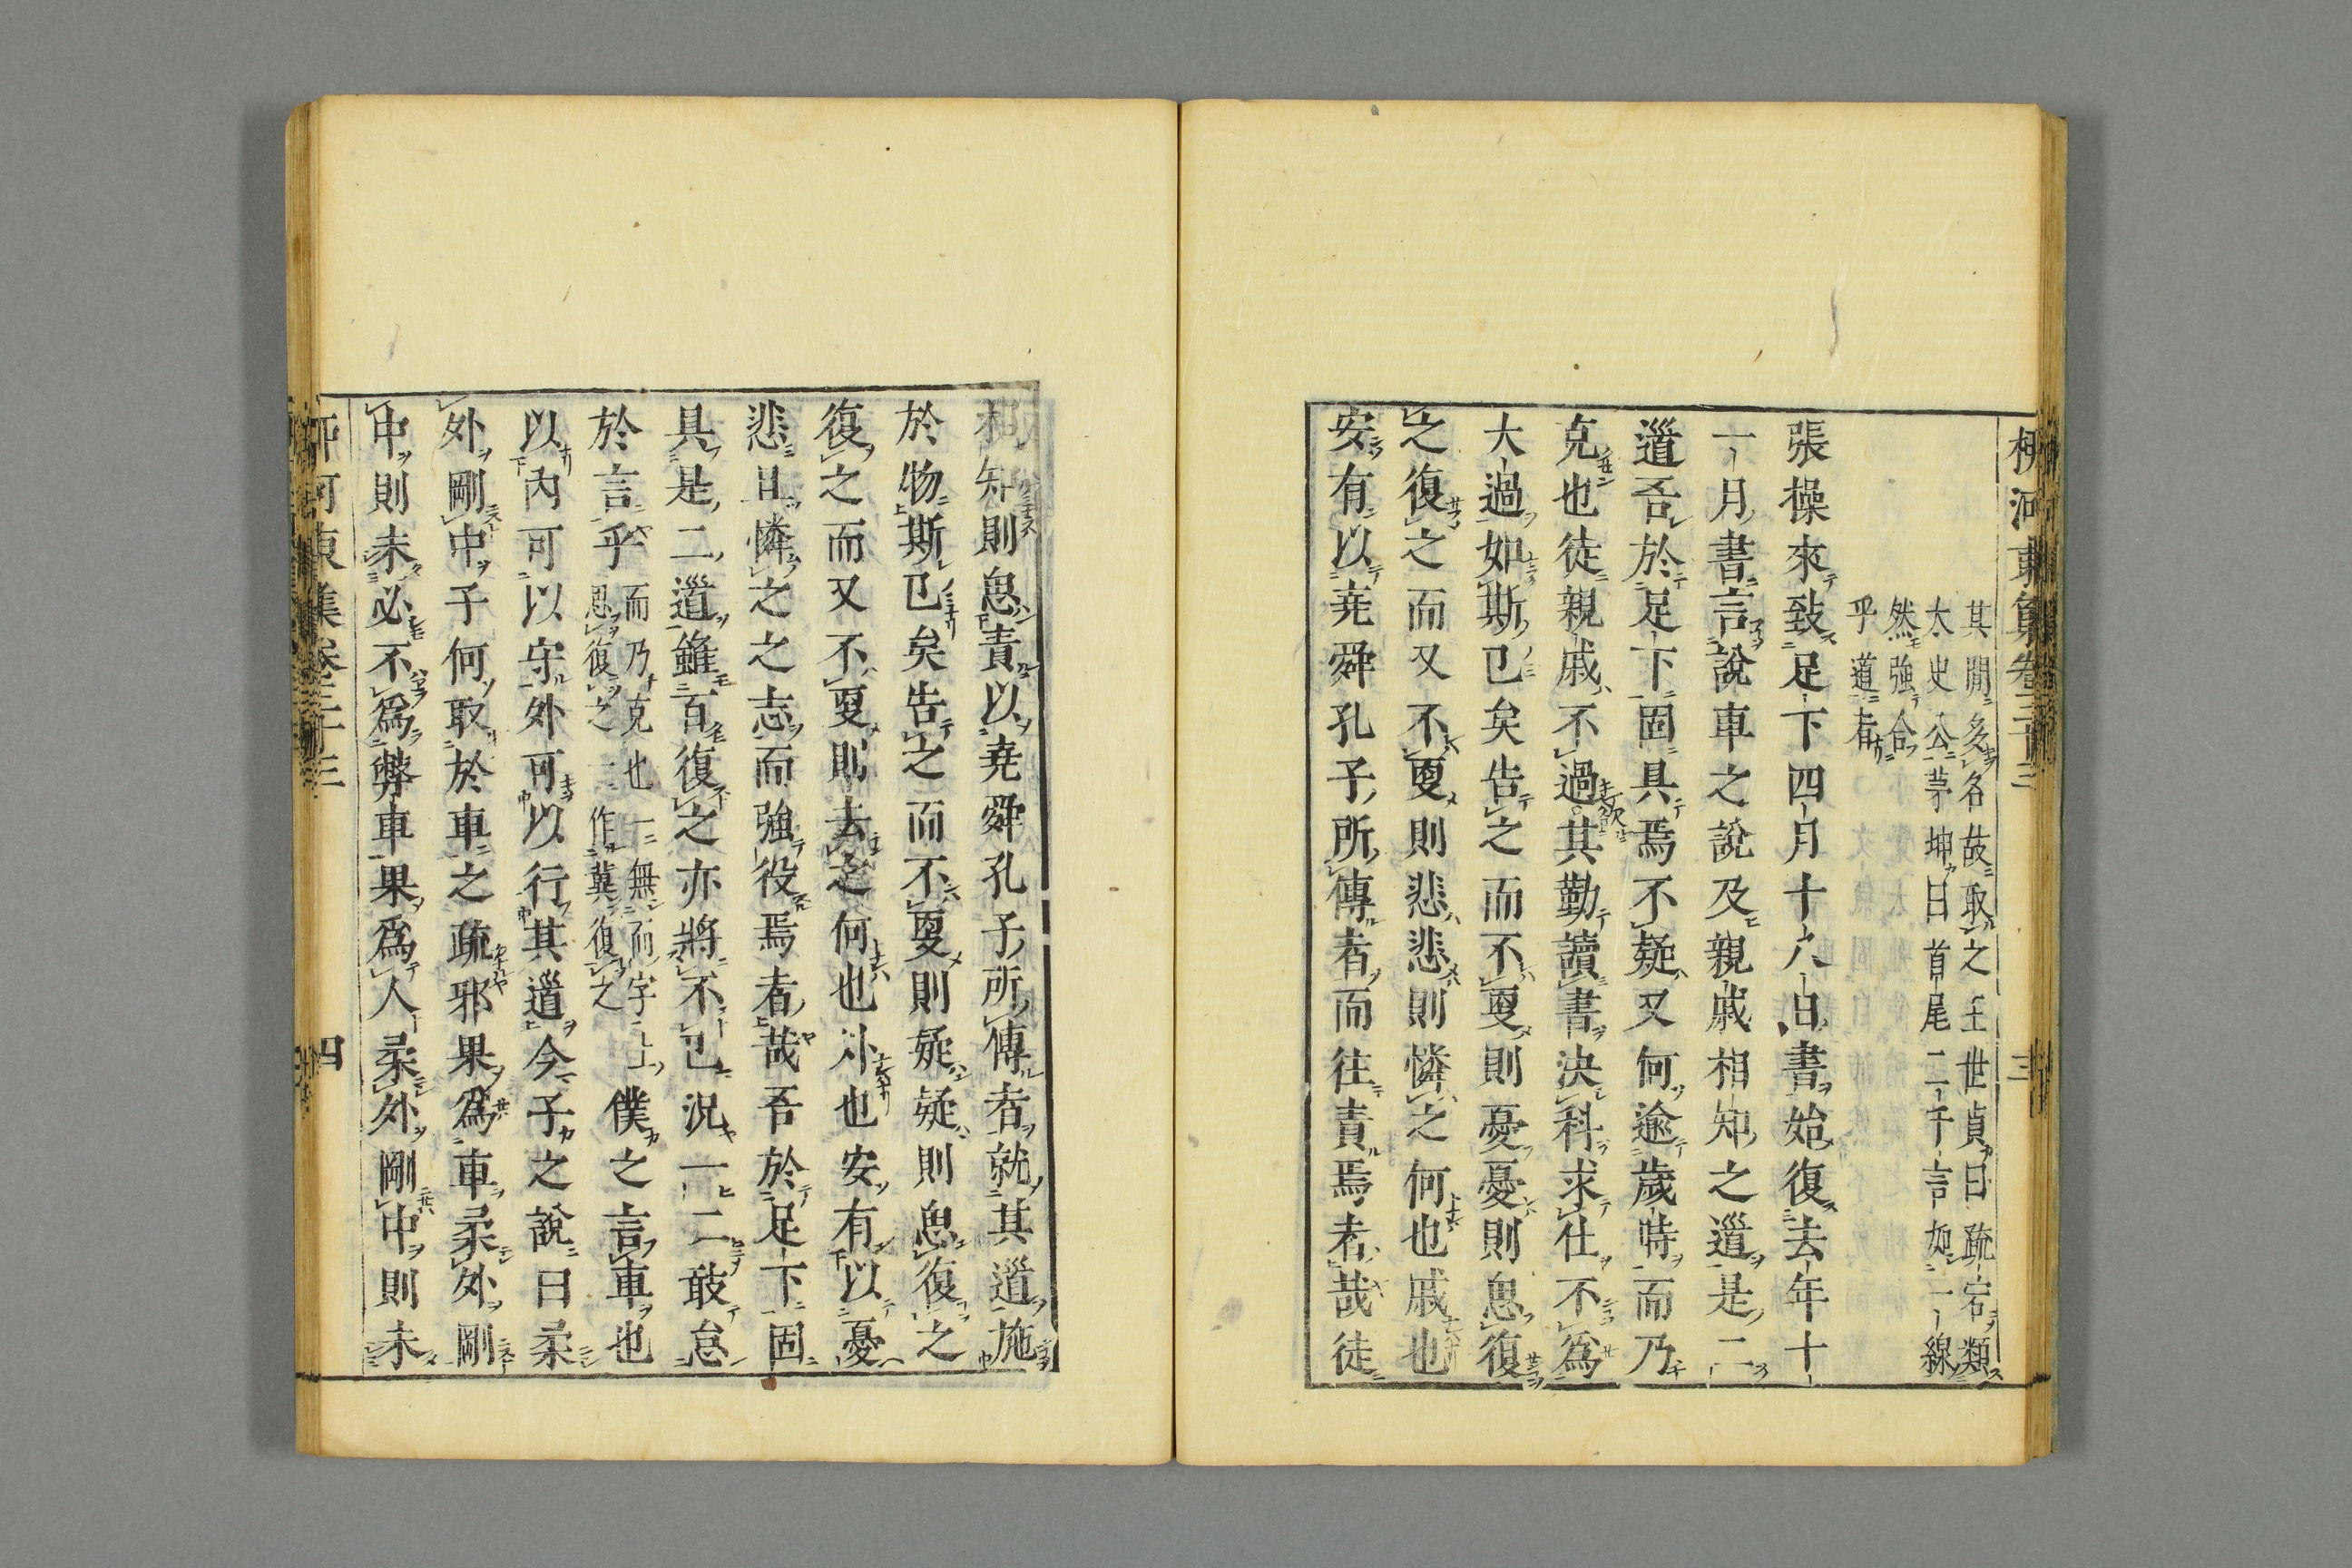 柳河東集卷三十三 三
其間多名故取之王世貞曰疏宕類
太史公茅坤曰首尾二千言如一線
然強合
乎道者
張操來致足下四月十八日書始復去年十
一月書言說車之說及親戚相知之道是二
道吾於足下固具焉不疑又何逾歲時而乃
克也徒親戚不過其勤讀書決科求仕不為
大過如斯已矣告之而不更則憂憂則思復
之復之而又不更則悲悲則憐之何也戚也
安有以堯舜孔子所傳者而往責焉者哉徒
相知則思責以堯舜孔子所傳者就其道施
於物斯已矣告之而不更則疑疑則思復之
復之而又不更則去之何也外也安有以憂
悲且憐之之志而強役焉者哉吾於足下固
具是二道雖百復之亦將不已況一二敢怠
於言乎而乃克也一無而字思復之一作冀復之僕之言車也
以內可以守外可以行其道今子之說曰柔
外剛中子何取於車之疏邪果為車柔外剛
中則未必不為弊車果為人柔外剛中則未
柳河東集卷三十三 四